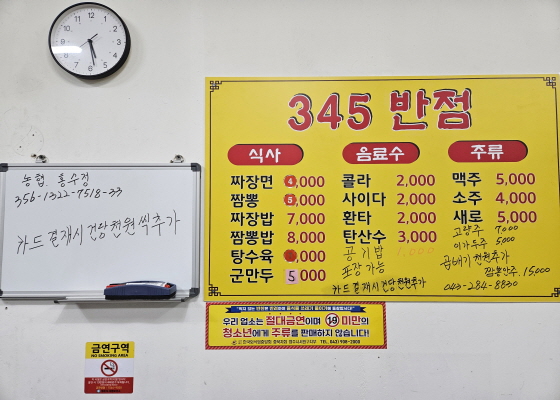 농협 홍수정
356-1322-7518-33
카드결재시 건당 천원씩 추가
345 반점
식사
짜장면 4,000
짬뽕 5,000
짜장밥 7,000
짬뽕밥 8,000
탕수육 ,000
군만두 5,000
음료수
콜라 2,000
사이다 2,000
환타 2,000
탄산수 3,000
공기밥 1,000
포장가능
카드결재시 건당천원추가
주류
맥주 5,000
소주 4,000
새로 5,000
고량주 7,000
이가두주 5,000
곱배기 천원추가
짬뽕안주 15,000
043-284-8830
우리 업소는 절대금연이며 19 미만의
청소년에게 주류를 판매하지 않습니다!
금연구역
NO SMOKING AREA